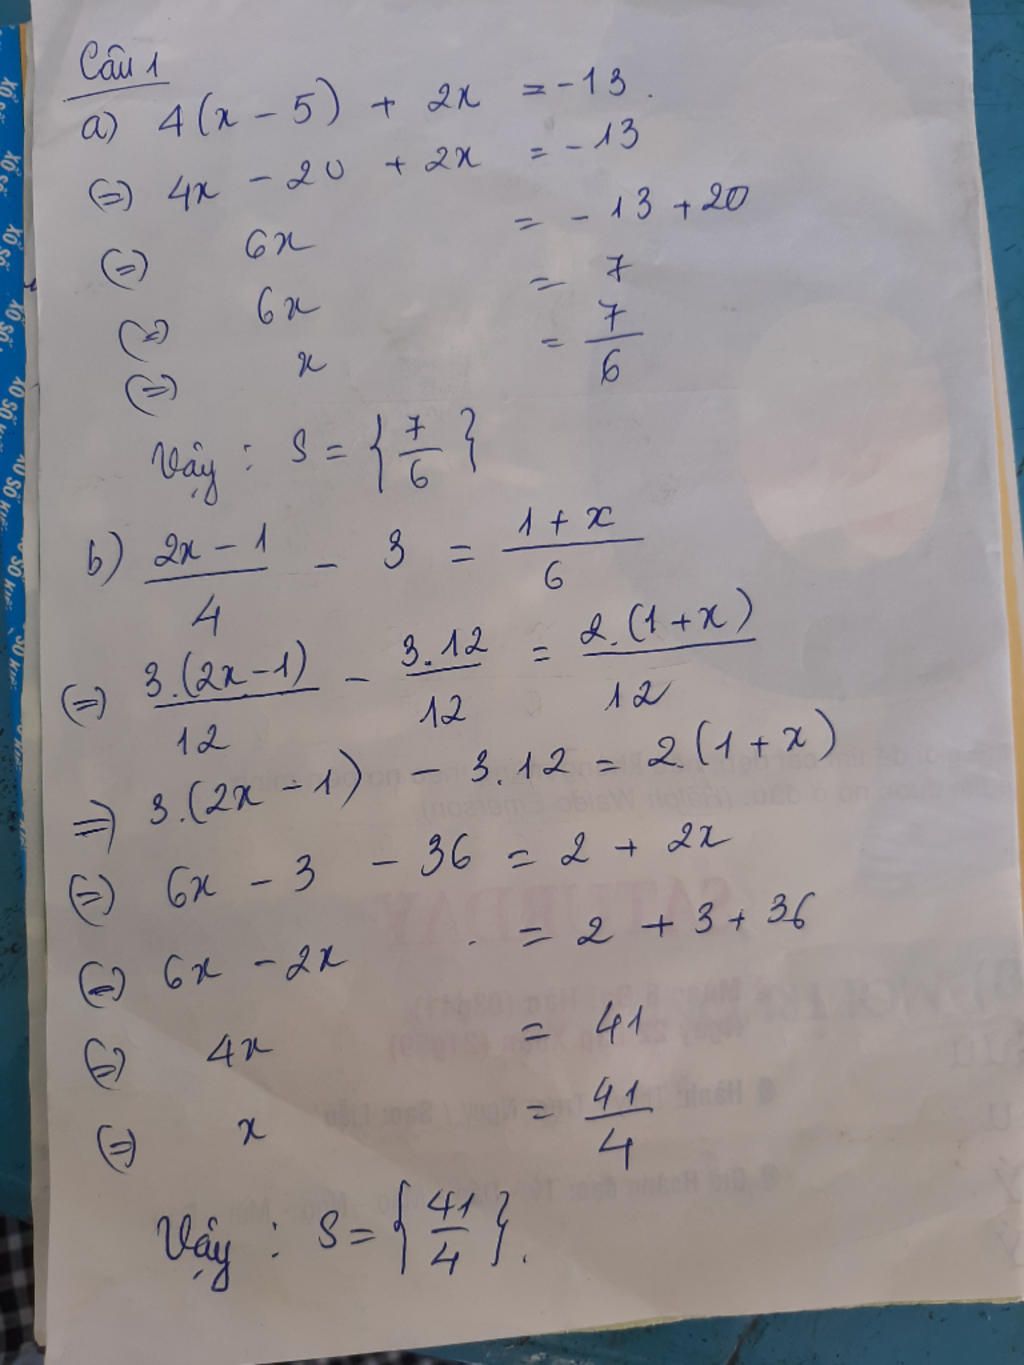 Câu 1
a) 4(x - 5) + 2x = -13.
(=) 4x - 20 + 2x = -13
(=) 6x = -13 + 20
(=) 6x = 7
(=) x = 7/6
Vậy : S = {7/6}
b) (2x - 1)/4 - 3 = (1 + x)/6
(=) 3.(2x - 1)/12 - 3.12/12 = 2.(1 + x)/12
=) 3.(2x - 1) - 3.12 = 2(1 + x)
(=) 6x - 3 - 36 = 2 + 2x
(=) 6x - 2x = 2 + 3 + 36
(=) 4x = 41
(=) x = 41/4
Vậy : S = {41/4}.